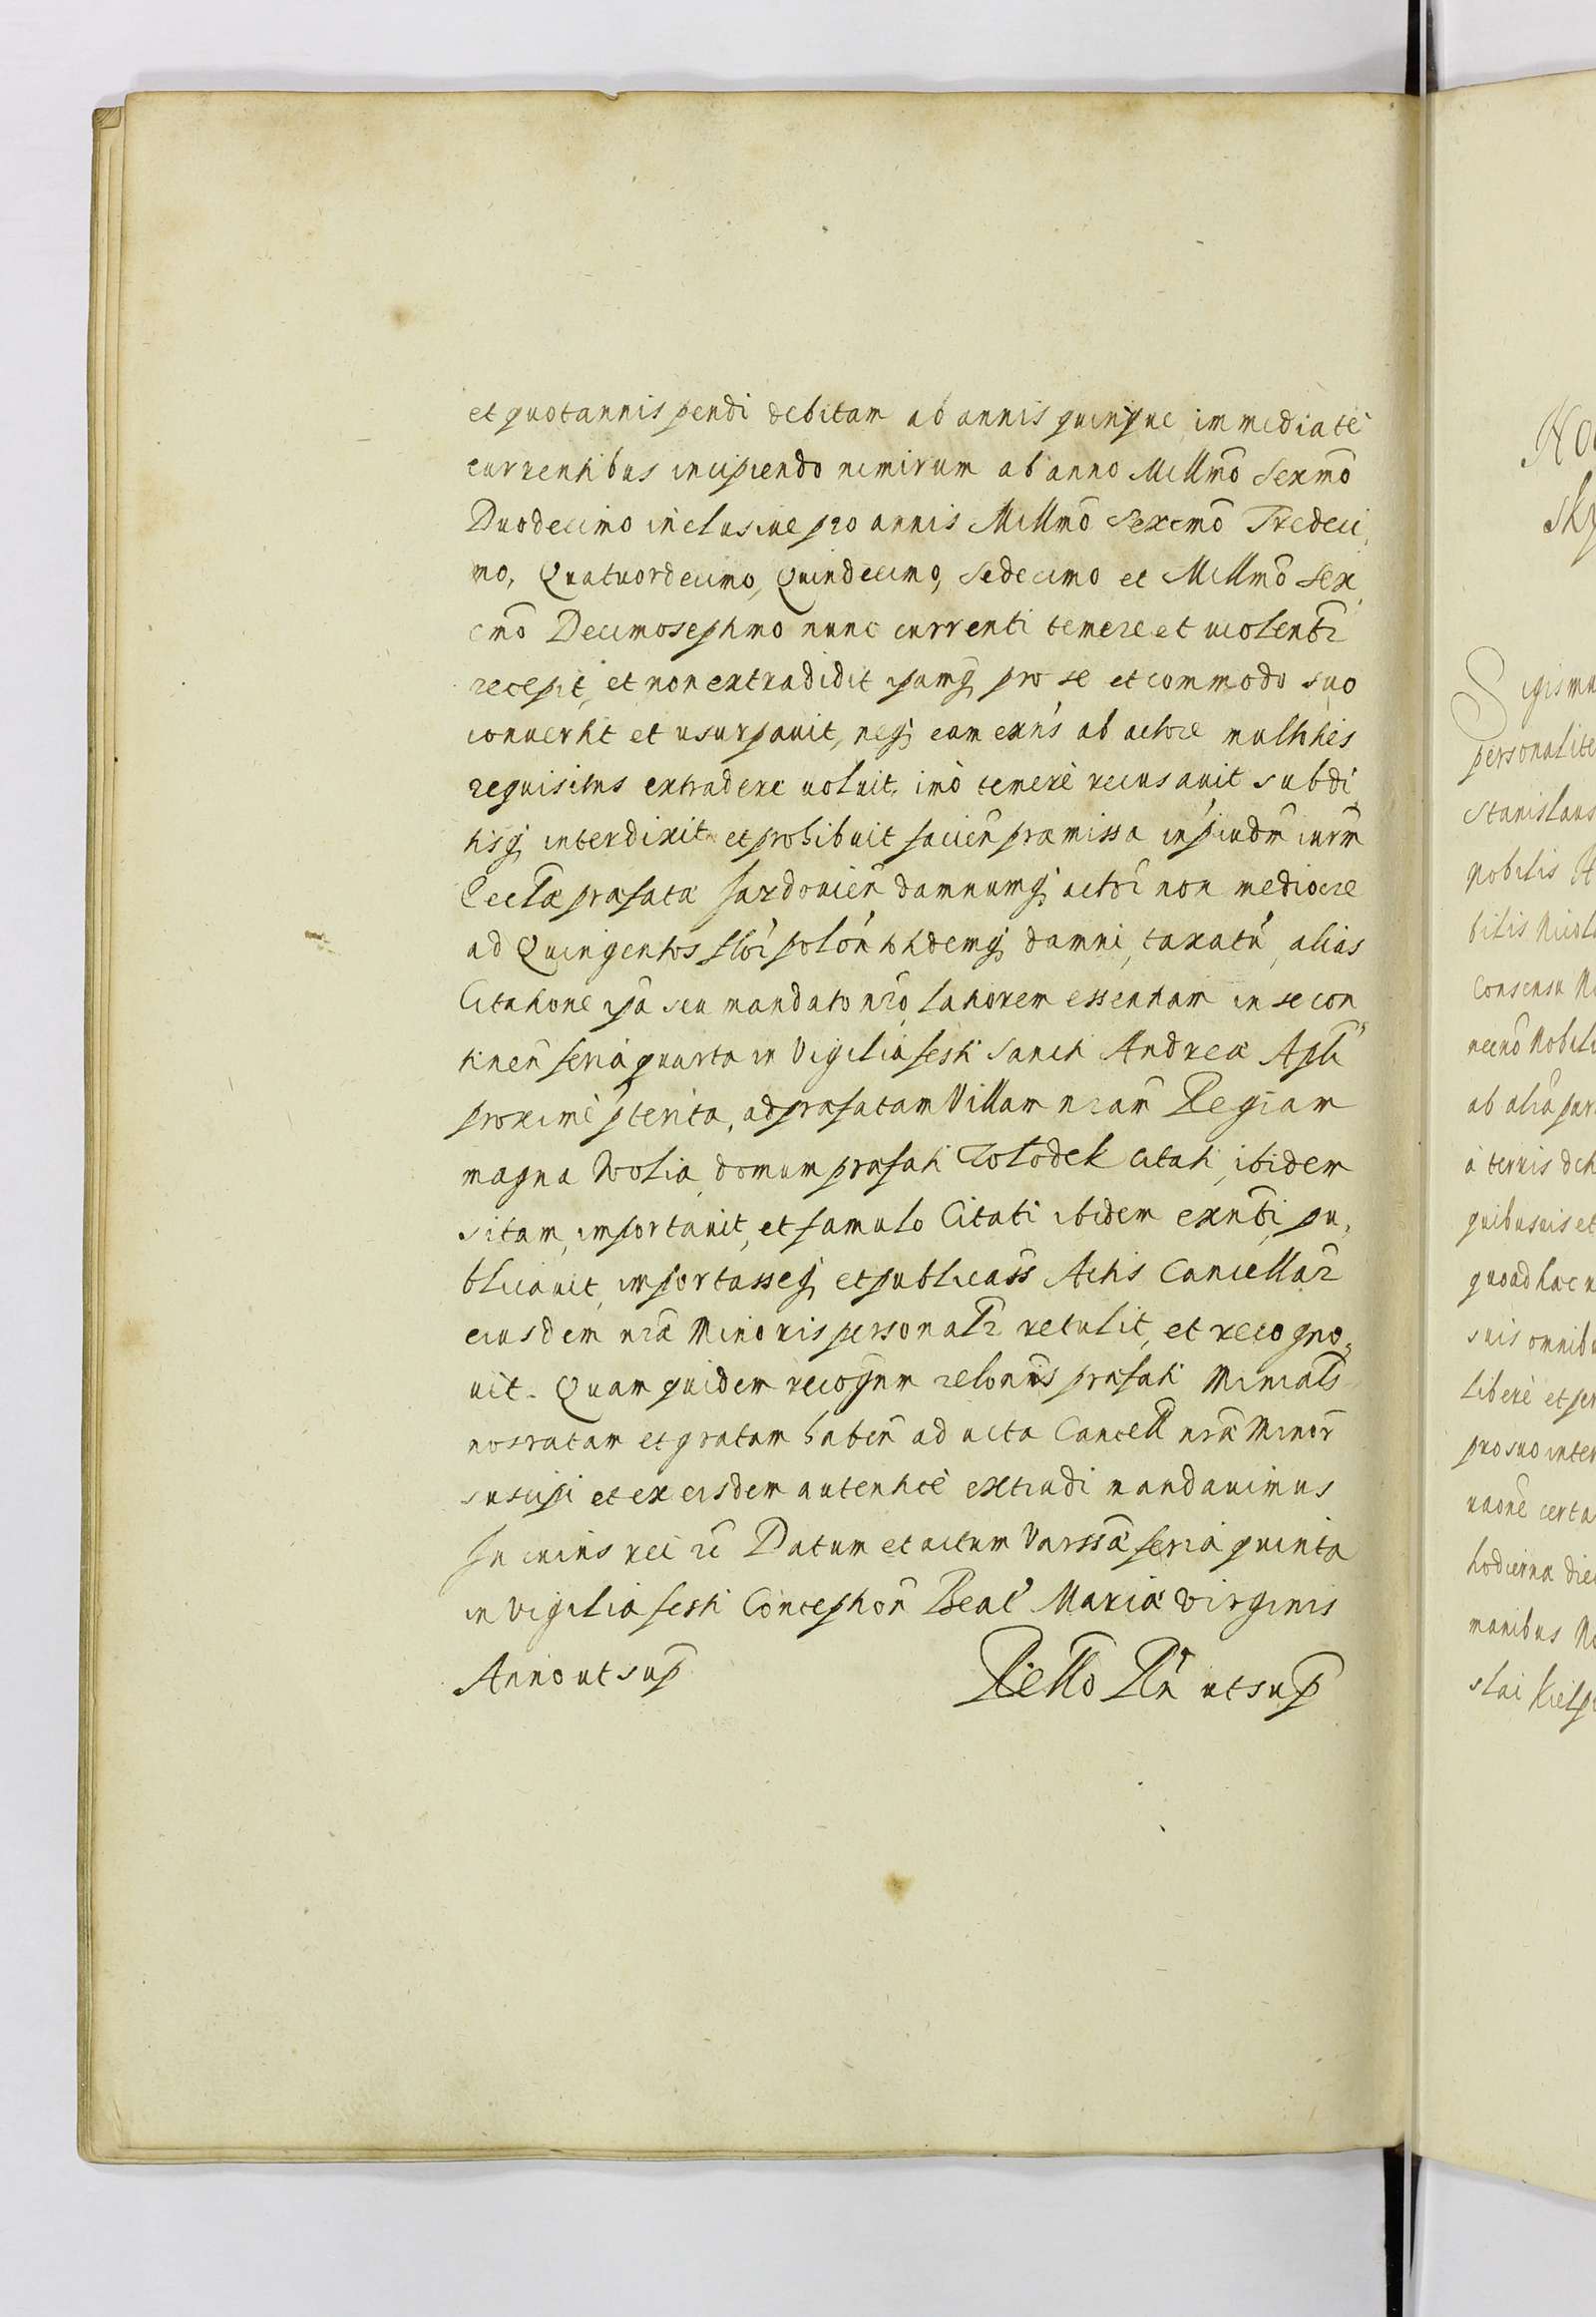 et quotannis pendi debitam ab annis quinque immediatè
currentibus incipiendo nimirum ab anno Millmõ Sexmõ
Duodecimo inclusiue pro annis Millmõ Sexcmõ Tredeci,
mo, Quatuordecimo, Quindecimo, Sedecimo et Millmõ Sex,
cmõ Decimoseptimo nunc currenti temere et uiolentr̃
recepit, et non extradidit ipamq; pro se et commodo suo
conuertit et usurpauit, neq; eam exñs ab actore multoties
requisitus extradere uoluit, imò temerè recusauit subdi,
tisq; interdixit et prohibuit facień præmissa in piudm̃ iurm̃
Ecclæ præfatæ Jazdouień damnumq; actoř non mediocre
ad Quingentos flor polón totidemq; damni, taxatú, alias
Citatione ipa seu mandato nr̃o latiorem essentiam in se con
tineñ feria quarta in Vigilia festi Sancti Andreæ Apli
proximè pterita, ad præfatam Villam nr̃am Regiam
magna Wolia, domum præfati Zolodek citati, ibidem
sitam, importauit, et famulo Citati ibidem exñti, pu,
blicauit, importasseq; et publicass̃ Actis Cancellar̃
eiusdem nr̃æ Minoris personalr̃ retulit, et recogno,
uit. Quam quidem recognm relonẽs præfati Minials
nos ratam et gratam habeñ ad acta Cancell nr̃æ Minor̃
suscipi et ex eisdem autenticè extradi mandauimus
In cuius rei zc̃ Datum et actum Varssæ feria quinta
in vigilia festi Conceptioñ Beaé Mariæ Virginis
Anno ut sup̃
Rello Rñ ut sup̃
Sigismu
personalite
Stanislaus
nobilis
bilis Nicol
consensu
necnõ Nobili
ab aliã par
quibusuis et
quoad hac
suis omnib
liberè et per
pro suo inter
uaonẽ certa
hodierna die
manibus
slai Kielp